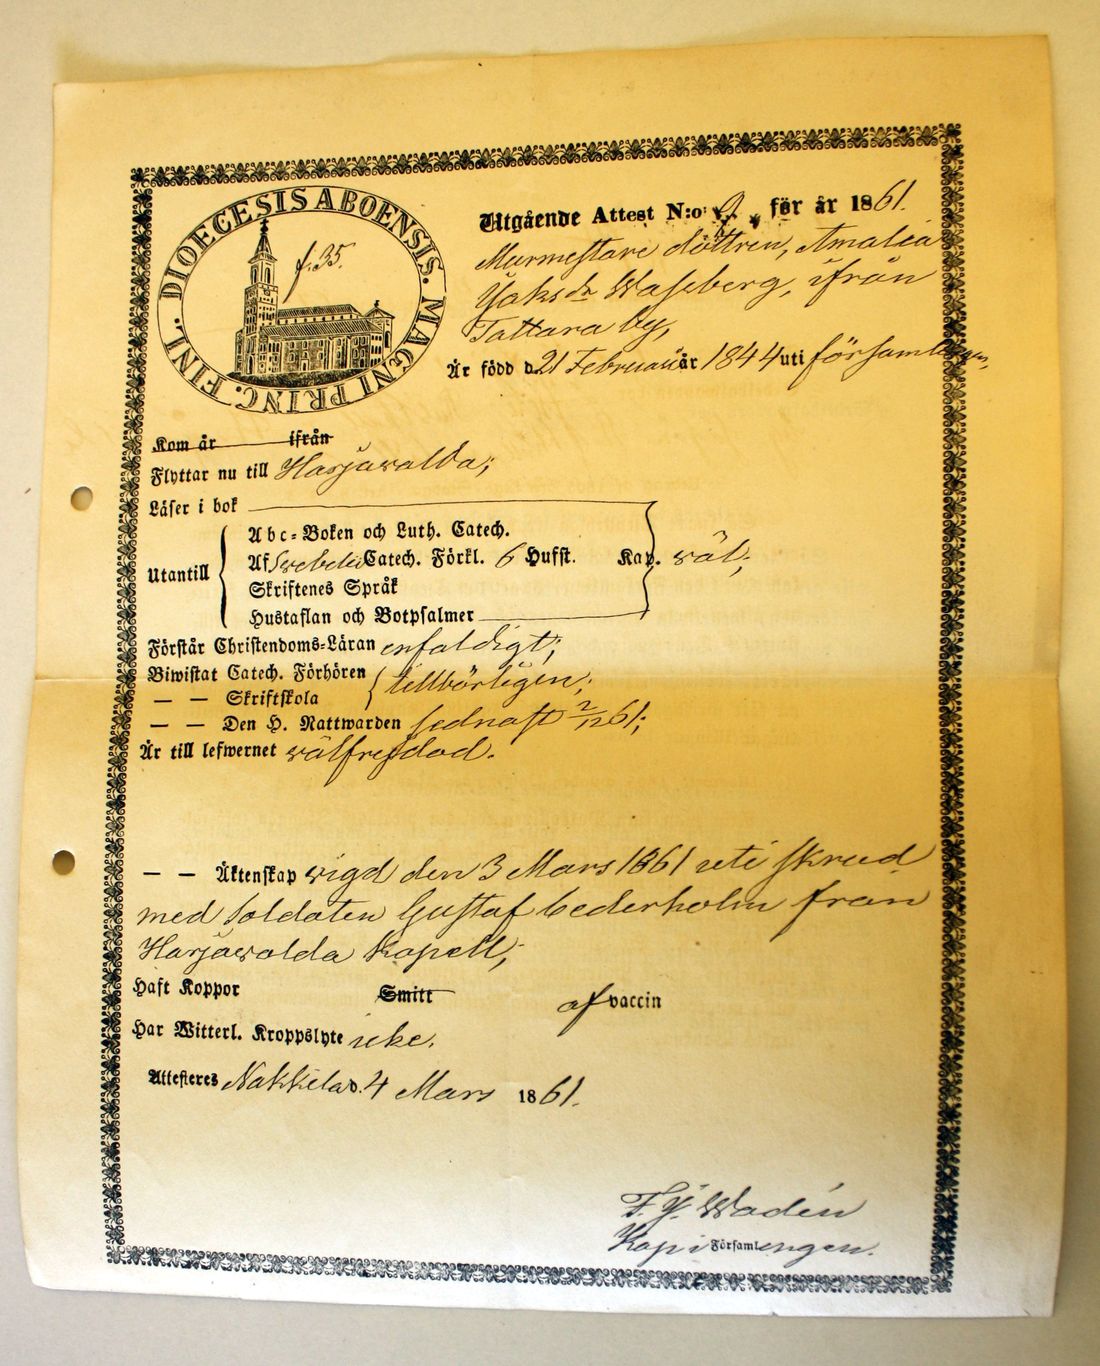 DIOECESIS ABOENSIS. MAGNI PRINC. FINL.
f. 35.
Utgående Attest N:o 9. för år 1861.
Murmestare dottren, Amalia
Jaksdr Waseberg, ifrån
Tattara by,
Är född d. 21 Februari år 1844 uti församlingen,
Kom år ifrån
Flyttar nu till Harjawalda;
Läser i bok
Utantill
Abc-Boken och Luth. Catech.
Af Svebelii Catech. Förkl. 6 Hufst. Kap. väl;
Skriftenes Språk
Hustaflan och Botpsalmer
Förstår Christendoms-Läran enfaldigt;
Biwistat Catech. Förhören
— — Skriftskola tillbörligen;
— — Den H. Nattwarden sednast 2/12 61;
Är till lefwernet välfrejdad.
— — Äktenskap vigd den 3 Mars 1861 uti skrud
med soldaten Gustaf Cederholm från
Harjavalda Kapell;
Haft Koppor Smitt af vaccin
Har Witterl. Kroppslyte icke.
Attesteres Nakkila d. 4 Mars 1861.
F. J. Wadén
Kap i Församlengen.